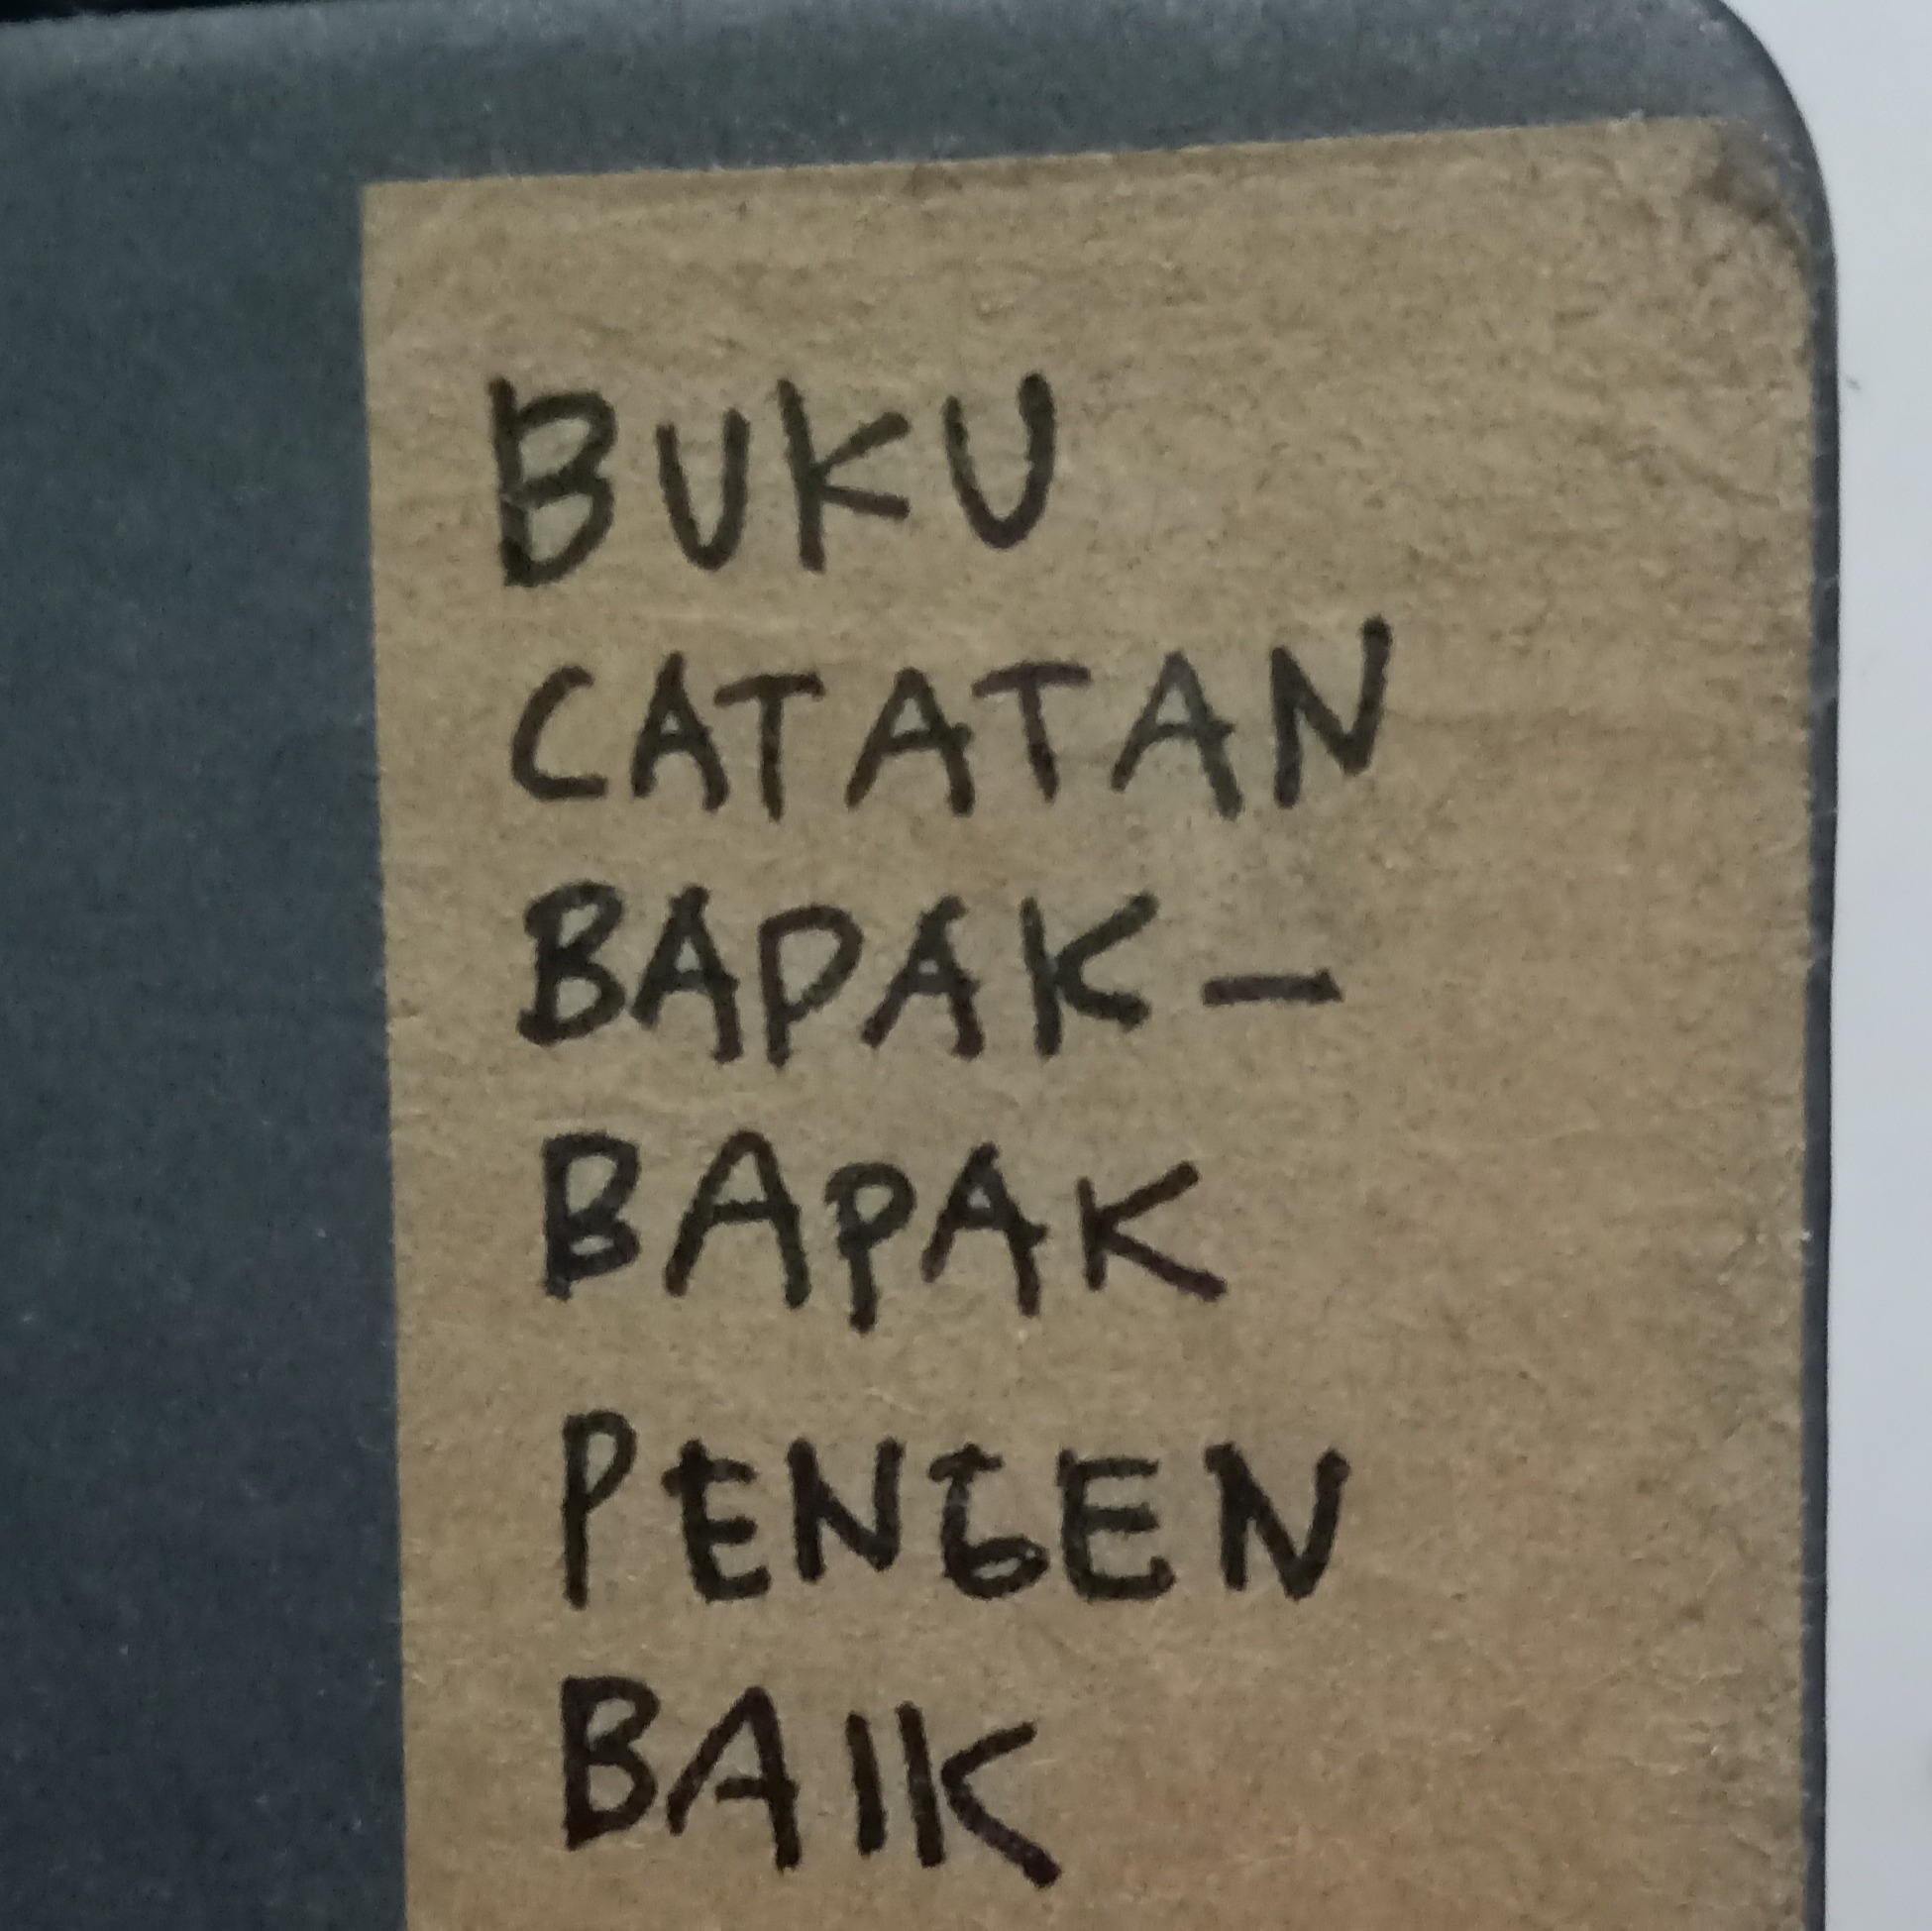 BUKU
CATATAN
BAPAK-
BAPAK
PENGEN
BAIK